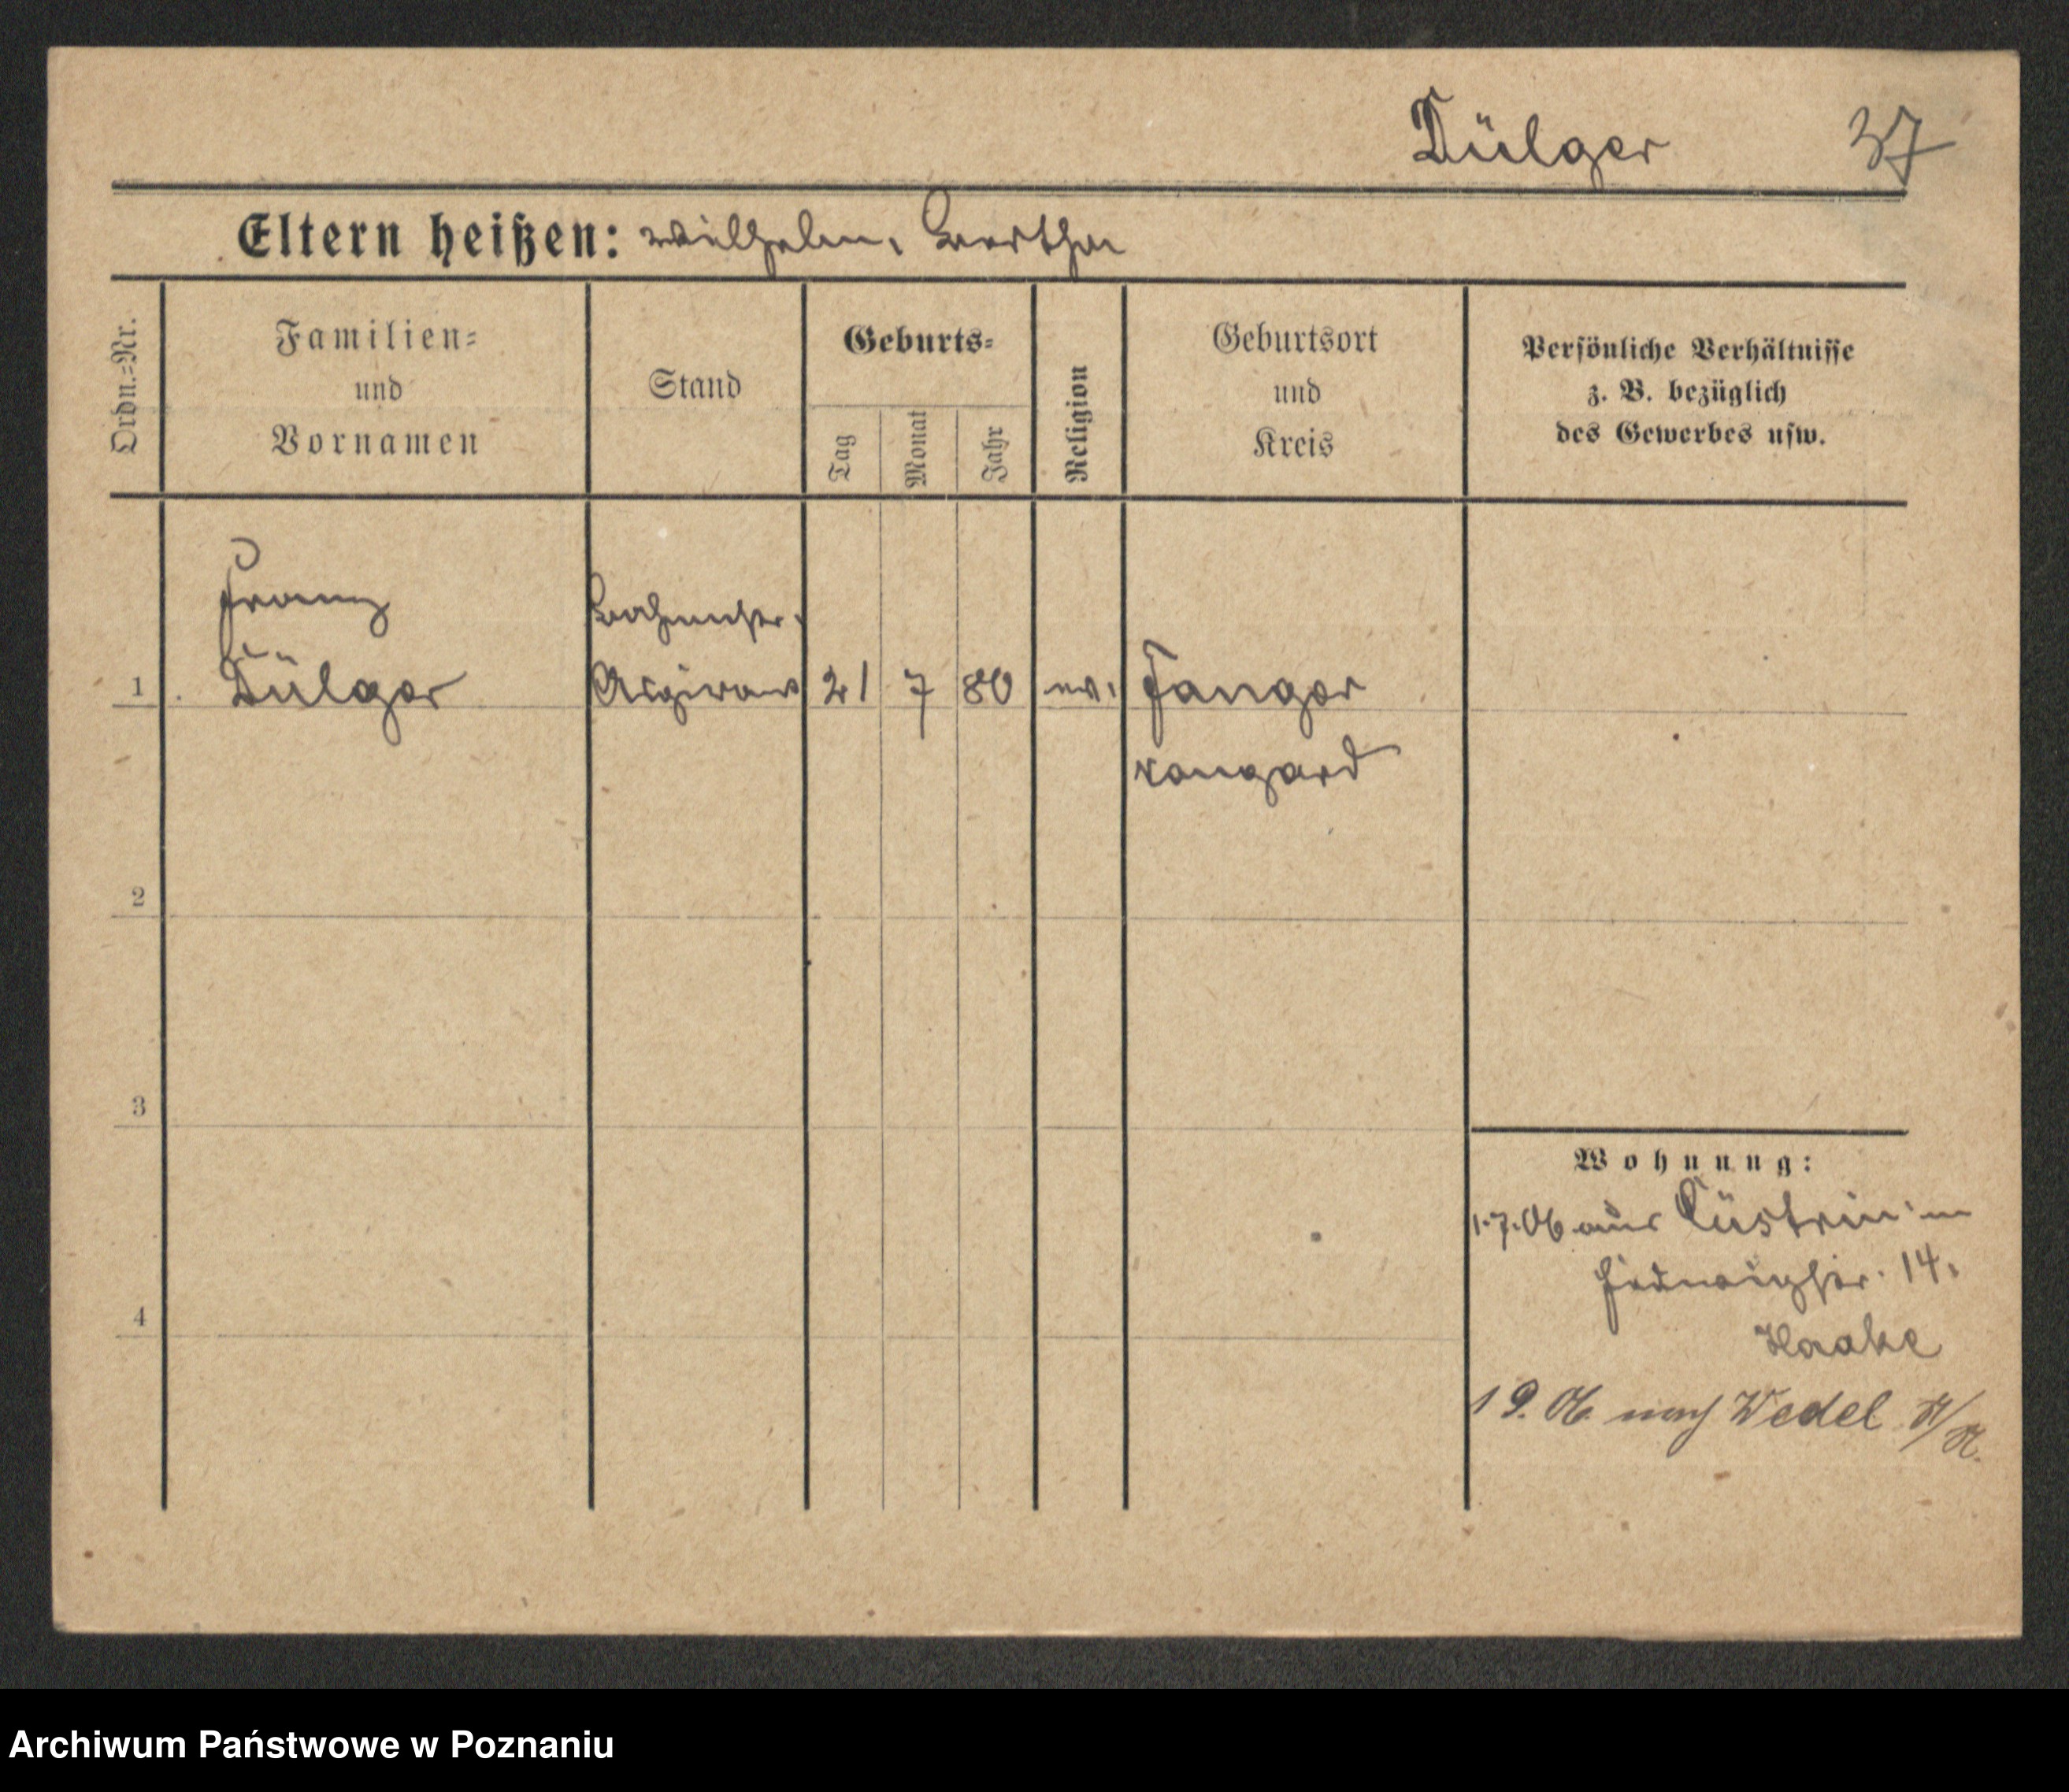 Dülger 37
Eltern heißen: Wilhelm, Bertha
Ordn.=Nr.
Familien=
und
Vornamen
Stand
Geburts=
Tag
Monat
Jahr
Religion
Geburtsort
und
Kreis
Persönliche Verhältnisse
z. B. bezüglich
des Gewerbes usw.
Franz
Bahnmstr.
1 Dülger Aspirant 21 7 80 ev. Fanger
Naugard
2
3
4
Wohnung:
1.7.06 aus Cüstrin in
Hedwigstr. 14.
Haake
1 9. 06 nach Wedel
Archiwum Państwowe w Poznaniu